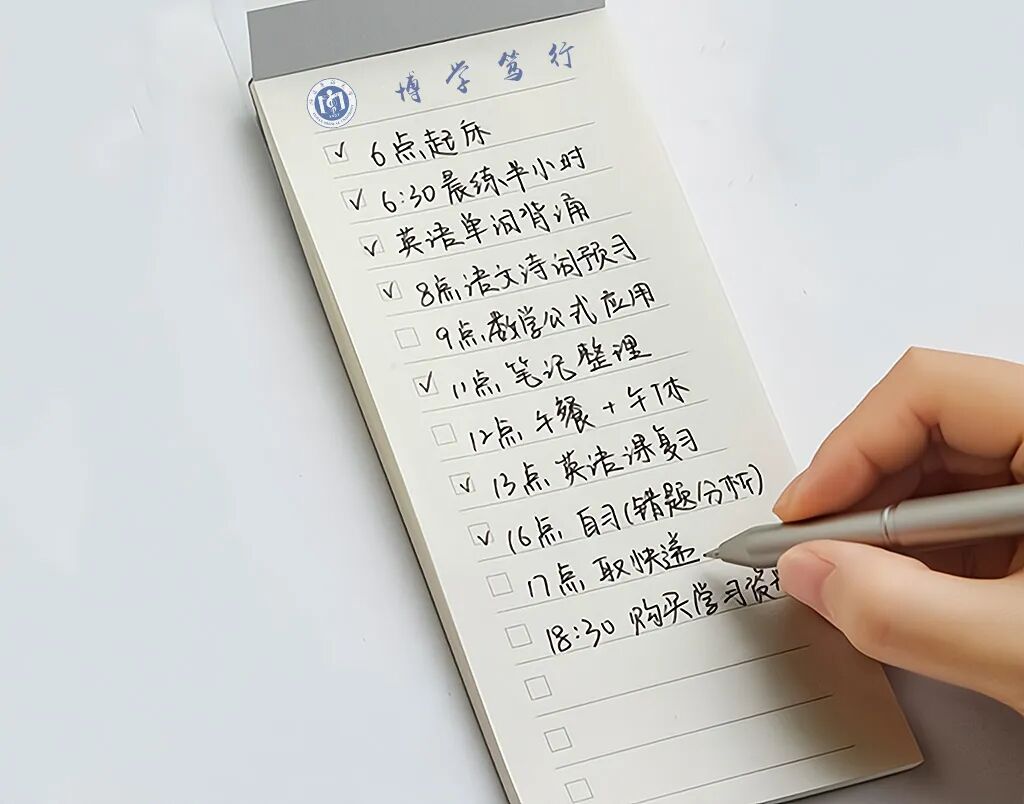 博学笃行
6点起床
6:30晨练半小时
英语单词背诵
8点语文诗词预习
9点数学公式应用
11点 笔记整理
12点 午餐 + 午休
13点 英语课复习
16点 自习(错题分析)
17点 取快递
18:30 购买学习资